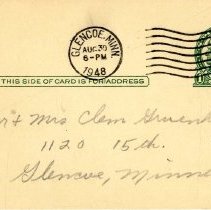 GLENCOE, MINN.
AUG 30
6-PM
1948
THIS SIDE OF CARD IS FOR ADDRESS
& Mrs Clem
1120 15th.
Glencoe, Minne